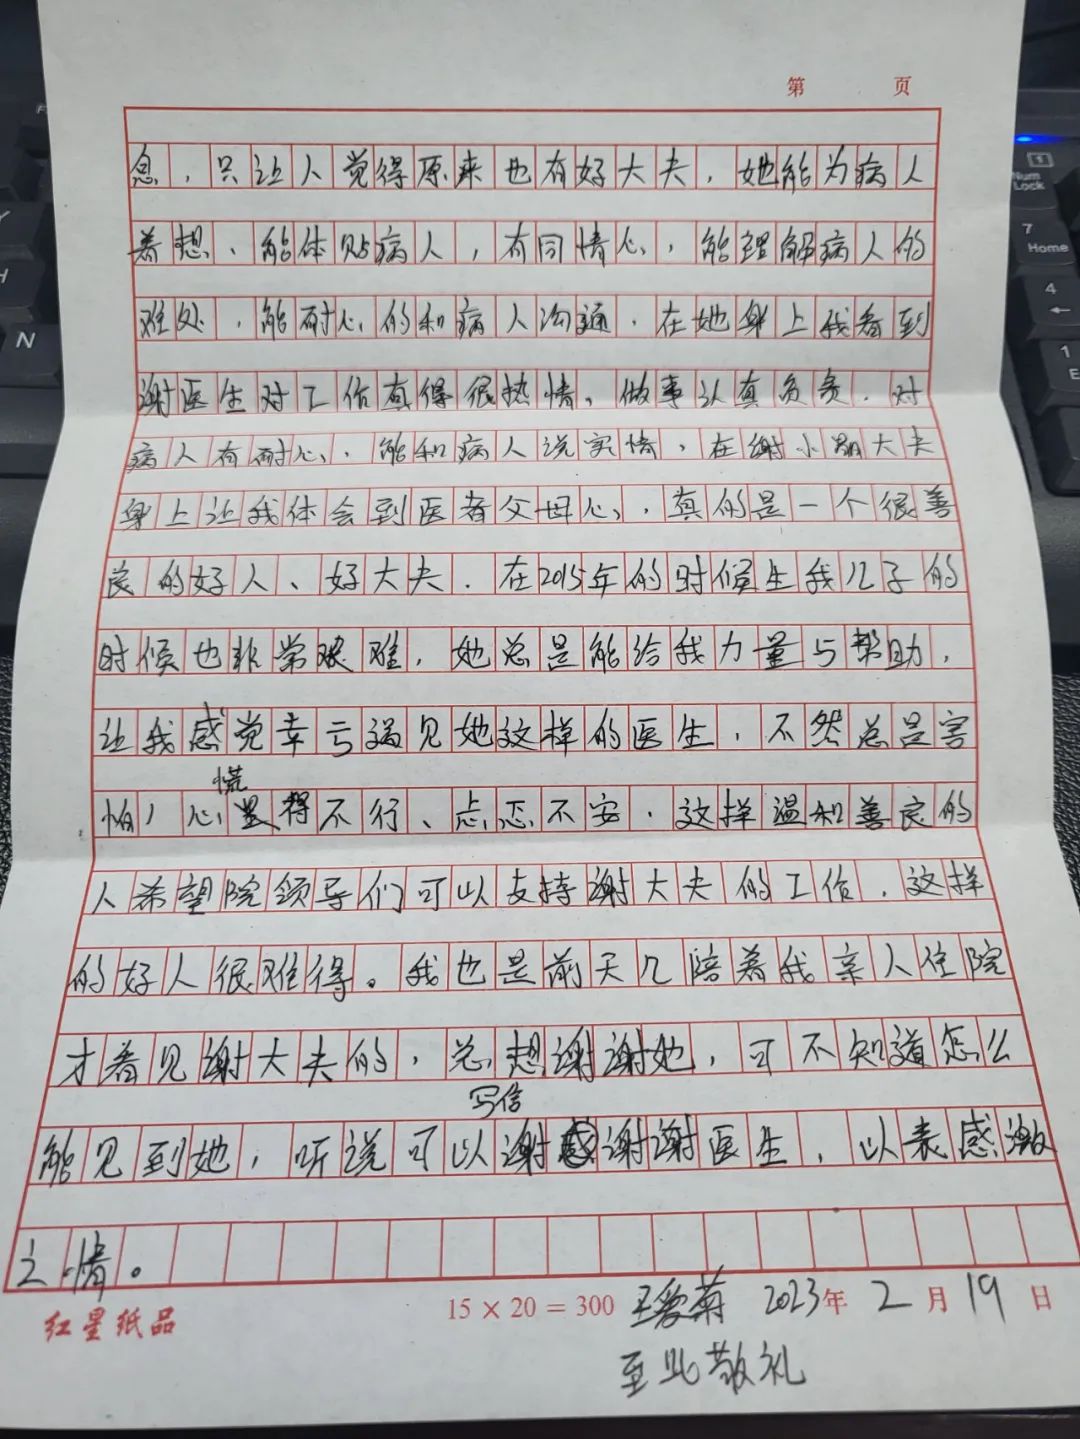 第 页
息，只让人觉得原来也有好大夫，她能为病人
着想、能体贴病人，有同情心，能理解病人的
难处，能耐心的和病人沟通．在她身上我看到
谢医生对工作有得很热情，做事认真负责．对
病人有耐心，能和病人说实情，在谢小大夫
身上让我体会到医者父母心，真的是一个很善
良的好人、好大夫．在2015年的时候生我儿子的
时候也非常艰难，她总是能给我力量与帮助，
让我感觉幸亏遇见她这样的医生，不然总是害
怕，心慌得不行、忐忑不安．这样温和善良的
人希望院领导们可以支持谢大夫的工作．这样
的好人很难得。我也是前天几陪着我亲人住院
才看见谢大夫的，总想谢谢她，可不知道怎么
写信
能见到她，听说可以谢感谢谢医生，以表感激
之情。
红星纸品 15×20=300 王爱菊 2023年2月19日
至此敬礼
Num Lock
7 Home
4 ←
1
N
H